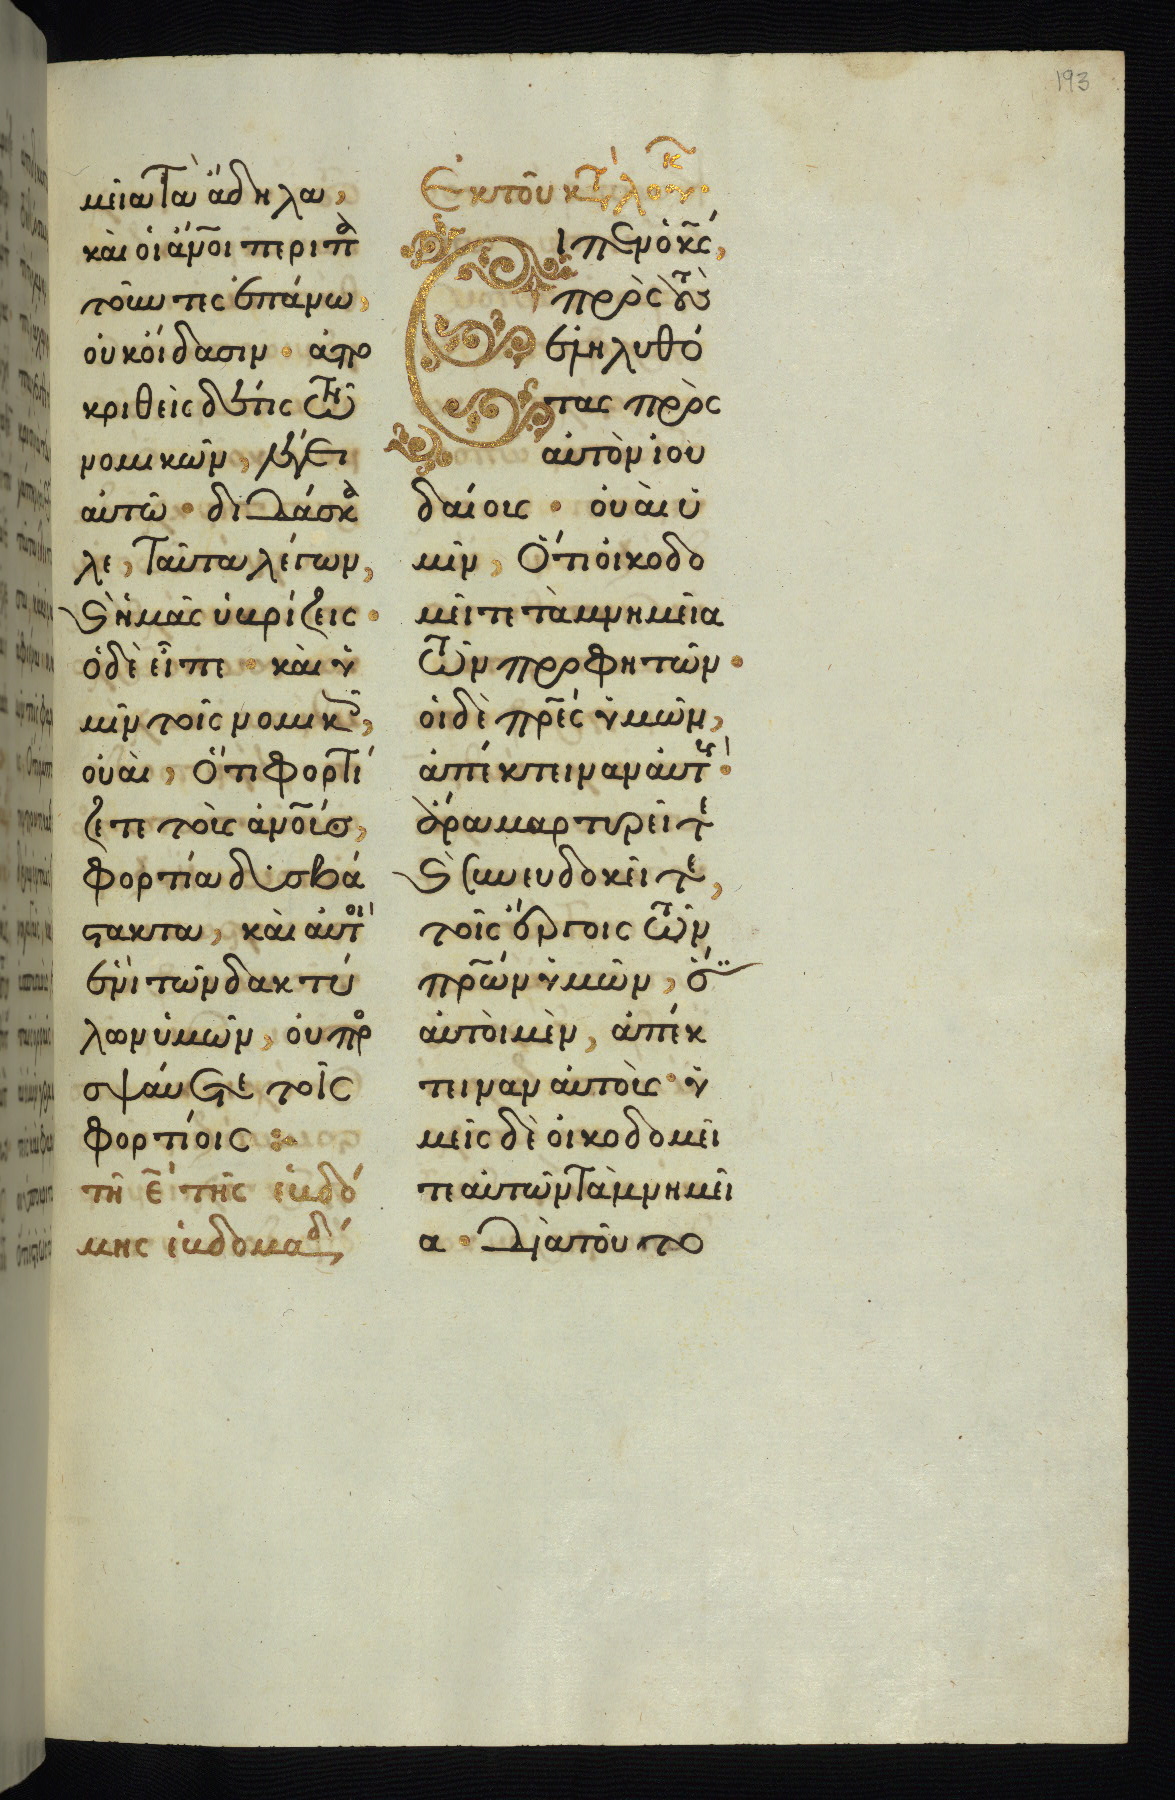 193
μεῖα τὰ ἄδηλα,
καὶ οἱ ἄν̅οι περιπα
τοῦντες ἐπάνω,
οὐκ οἴδασιν · ἀπο
κριθεὶς δέ τις τῶν
νομικῶν, λέγει
αὐτῶ · διδάσκα
λε, ταῦτα λέγων,
καὶ ἡμᾶς ὑβρίζεις ·
ὁ δὲ εἶπε · καὶ ὑ
μῖν τοῖς νομικοῖς,
οὐαὶ, ὅτι φορτί
ζετε τοὺς ἀν̅ους,
φορτία δυσβά
στακτα, καὶ αὐτοὶ
ἑνὶ τῶν δακτύ
λων ὑμῶν, οὐ προ
σψαύετε τοῖς
φορτίοις :
τῆ ε̅ τῆς ἑβδό
μης ἑβδομάδ
Εκ τοῦ κτ λουκ ·
Εἶπεν ὁ κ̅ς,
πρὸς τοὺς
ἐληλυθό
τας πρὸς
αὐτὸν ἰου
δαίους · οὐαὶ ὑ
μῖν, ὅτι οἰκοδο
μεῖτε τὰ μνημεῖα
τῶν προφητῶν ·
οἱ δὲ πρ̅ες ὑμῶν,
ἀπέκτειναν αὐτούς ·
ἄρα μαρτυρεῖτε
καὶ συνευδοκεῖτε,
τοῖς ἔργοις τῶν
πρ̅ων ὑμῶν, ὅτι
αὐτοὶ μὲν, ἀπέκ
τειναν αὐτοὺς · ὑ
μεῖς δὲ οἰκοδομεῖ
τε αὐτῶν τὰ μνημεῖ
α · διὰ τοῦτο